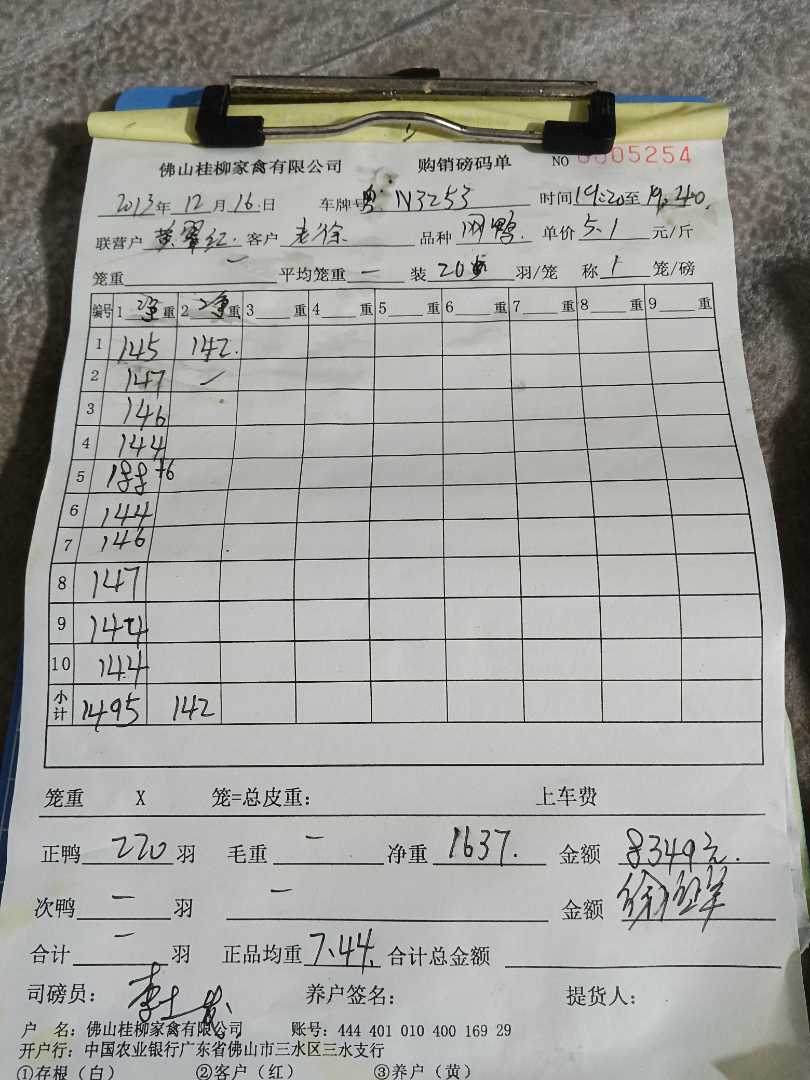 佛山桂柳家禽有限公司 购销磅码单 NO 0005254
2013年12月16日 车牌号粤N3253 时间19:20至19:40.
联营户 客户老徐 品种 鸭 单价5.1元/斤
笼重一 平均笼重一 装20只羽/笼 称1笼/磅
编号 1净重 2净重 3重 4重 5重 6重 7重 8重 9重
1 145 142.
2 147 一
3 146
4 144
5 188 +6
6 144
7 146
8 147
9 144
10 144
小计 1495 142
笼重 X 笼=总皮重: 上车费
正鸭220羽 毛重一 净重1637. 金额8349元.
次鸭一羽 一 金额
合计一羽 正品均重7.44. 合计总金额
司磅员: 养户签名: 提货人:
户 名: 佛山桂柳家禽有限公司 账号: 444 401 010 400 169 29
开户行: 中国农业银行广东省佛山市三水区三水支行
①存根（白） ②客户（红） ③养户（黄）